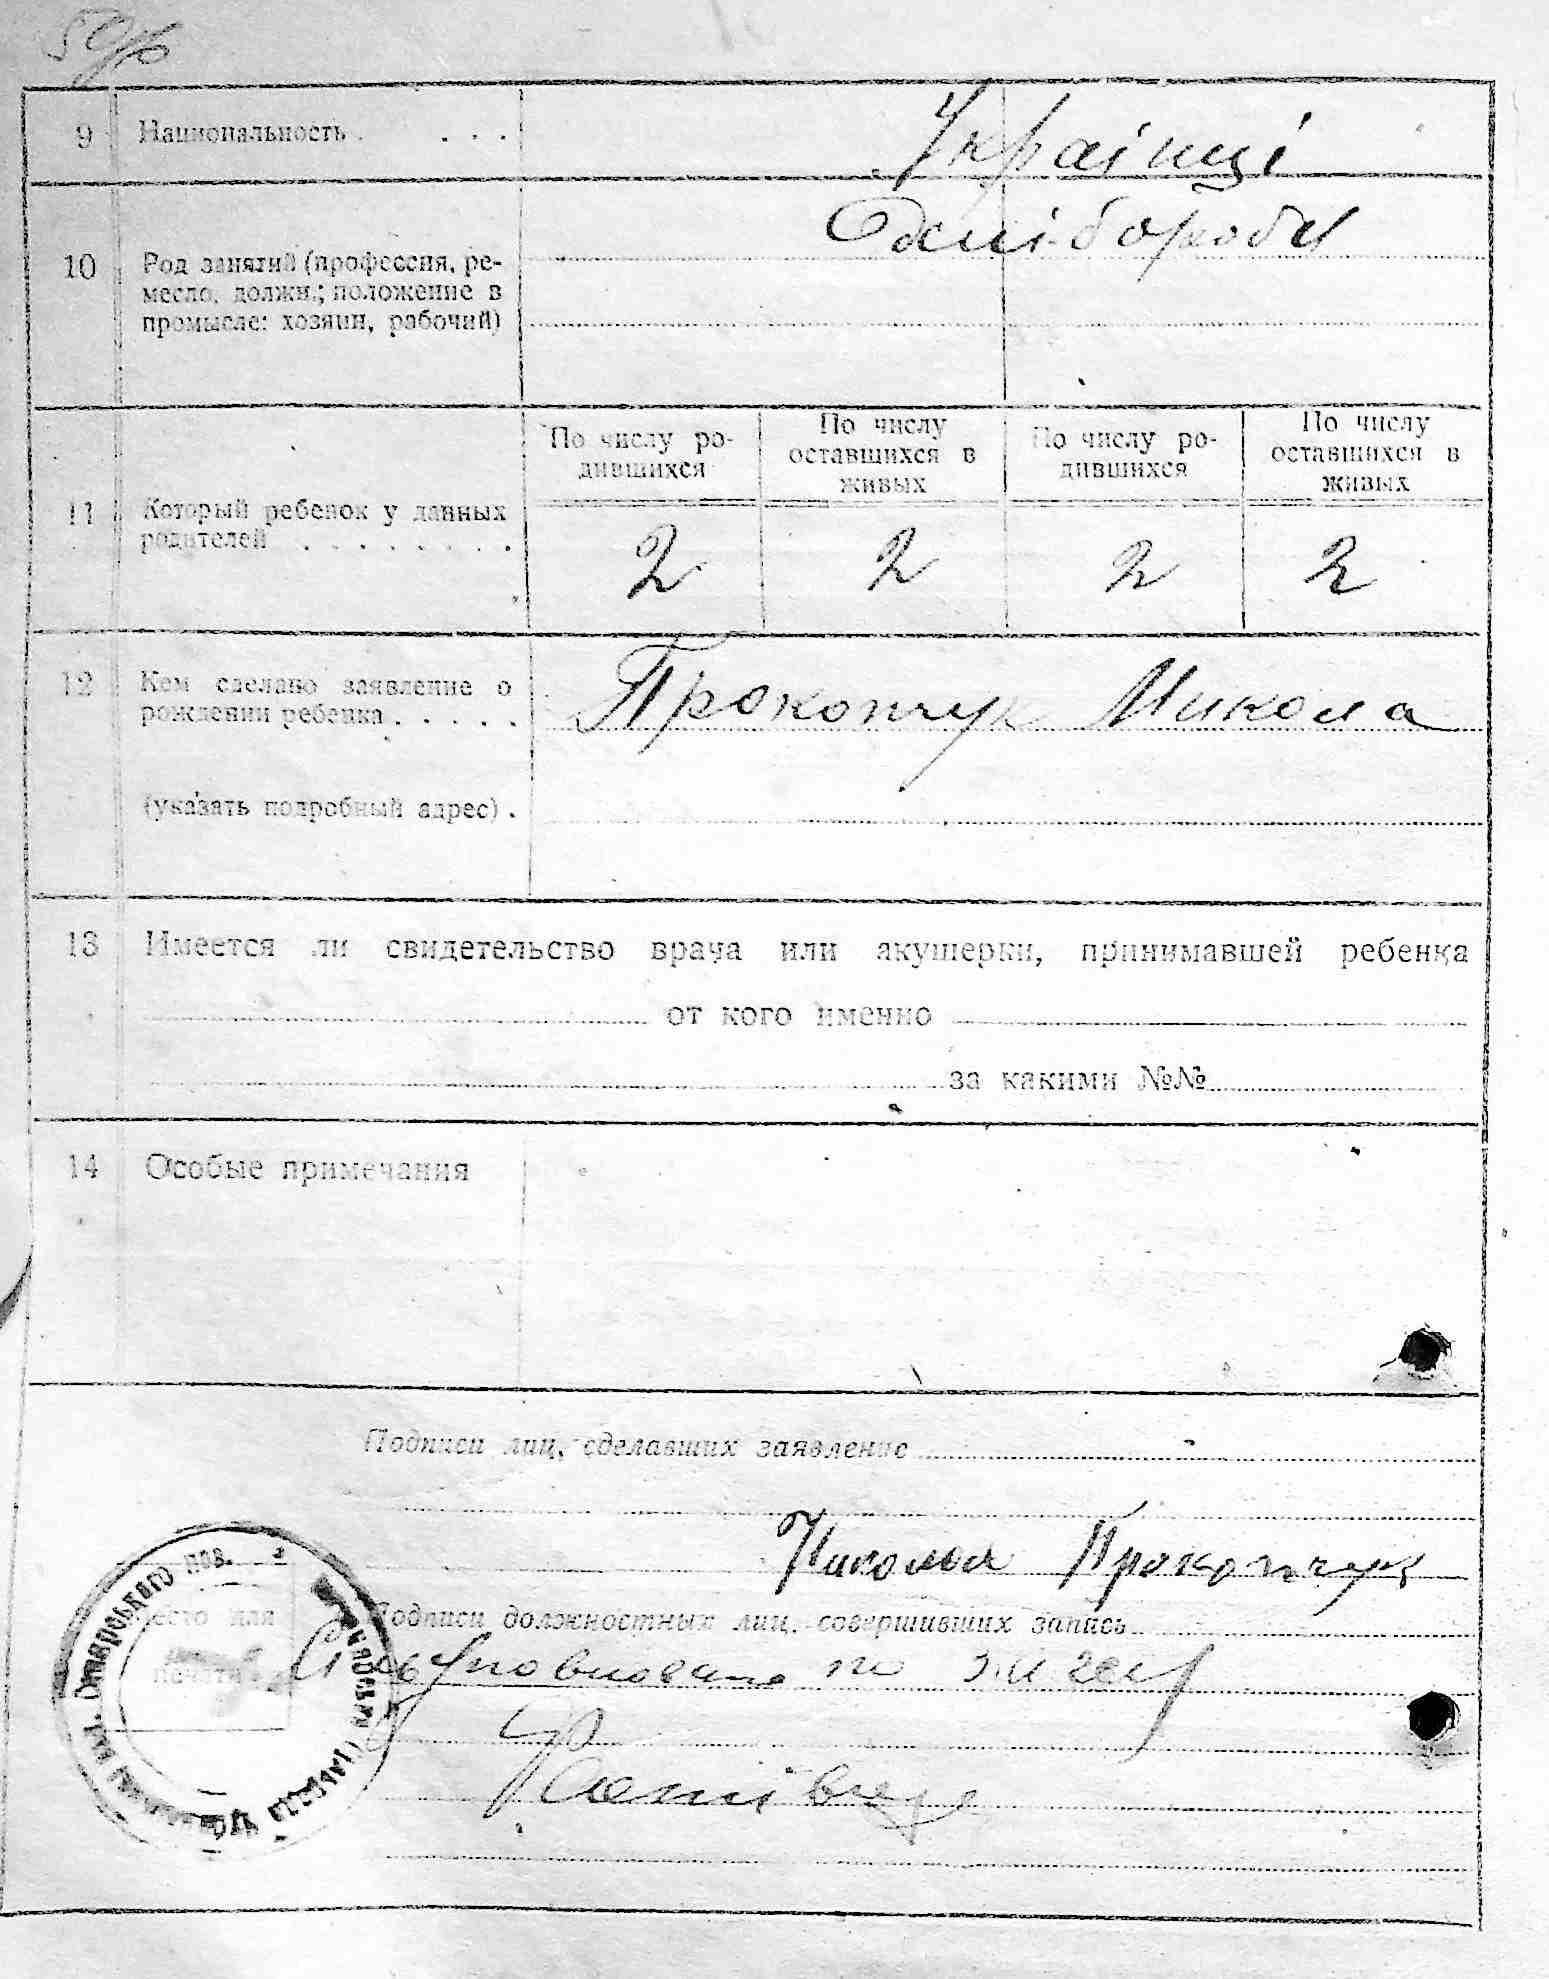 9 Национальность . . . . Українці
Хлібороби
10 Род занятий (профессия, ре-
месло, должн.; положение в
промысле: хозяин, рабочий)
По числу ро-
дившихся
По числу
оставшихся в
живых
По числу ро-
дившихся
По числу
оставшихся в
живых
11 Который ребенок у данных
родителей . . . . . . . .
2 2 2 2
12 Кем сделано заявление о
рождении ребенка . . . . .
Прокопчук Микола
(указать подробный адрес) .
13 Имеется ли свидетельство врача или акушерки, принимавшей ребенка
от кого именно
за какими №№
14 Особые примечания
Подписи лиц, сделавших заявление
Николая Прокопчук
Подписи должностных лиц, совершивших запись
по
место для
печати
пов.